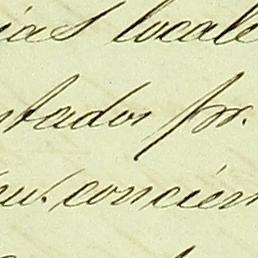 ias locale
ntados pr.
su. concien